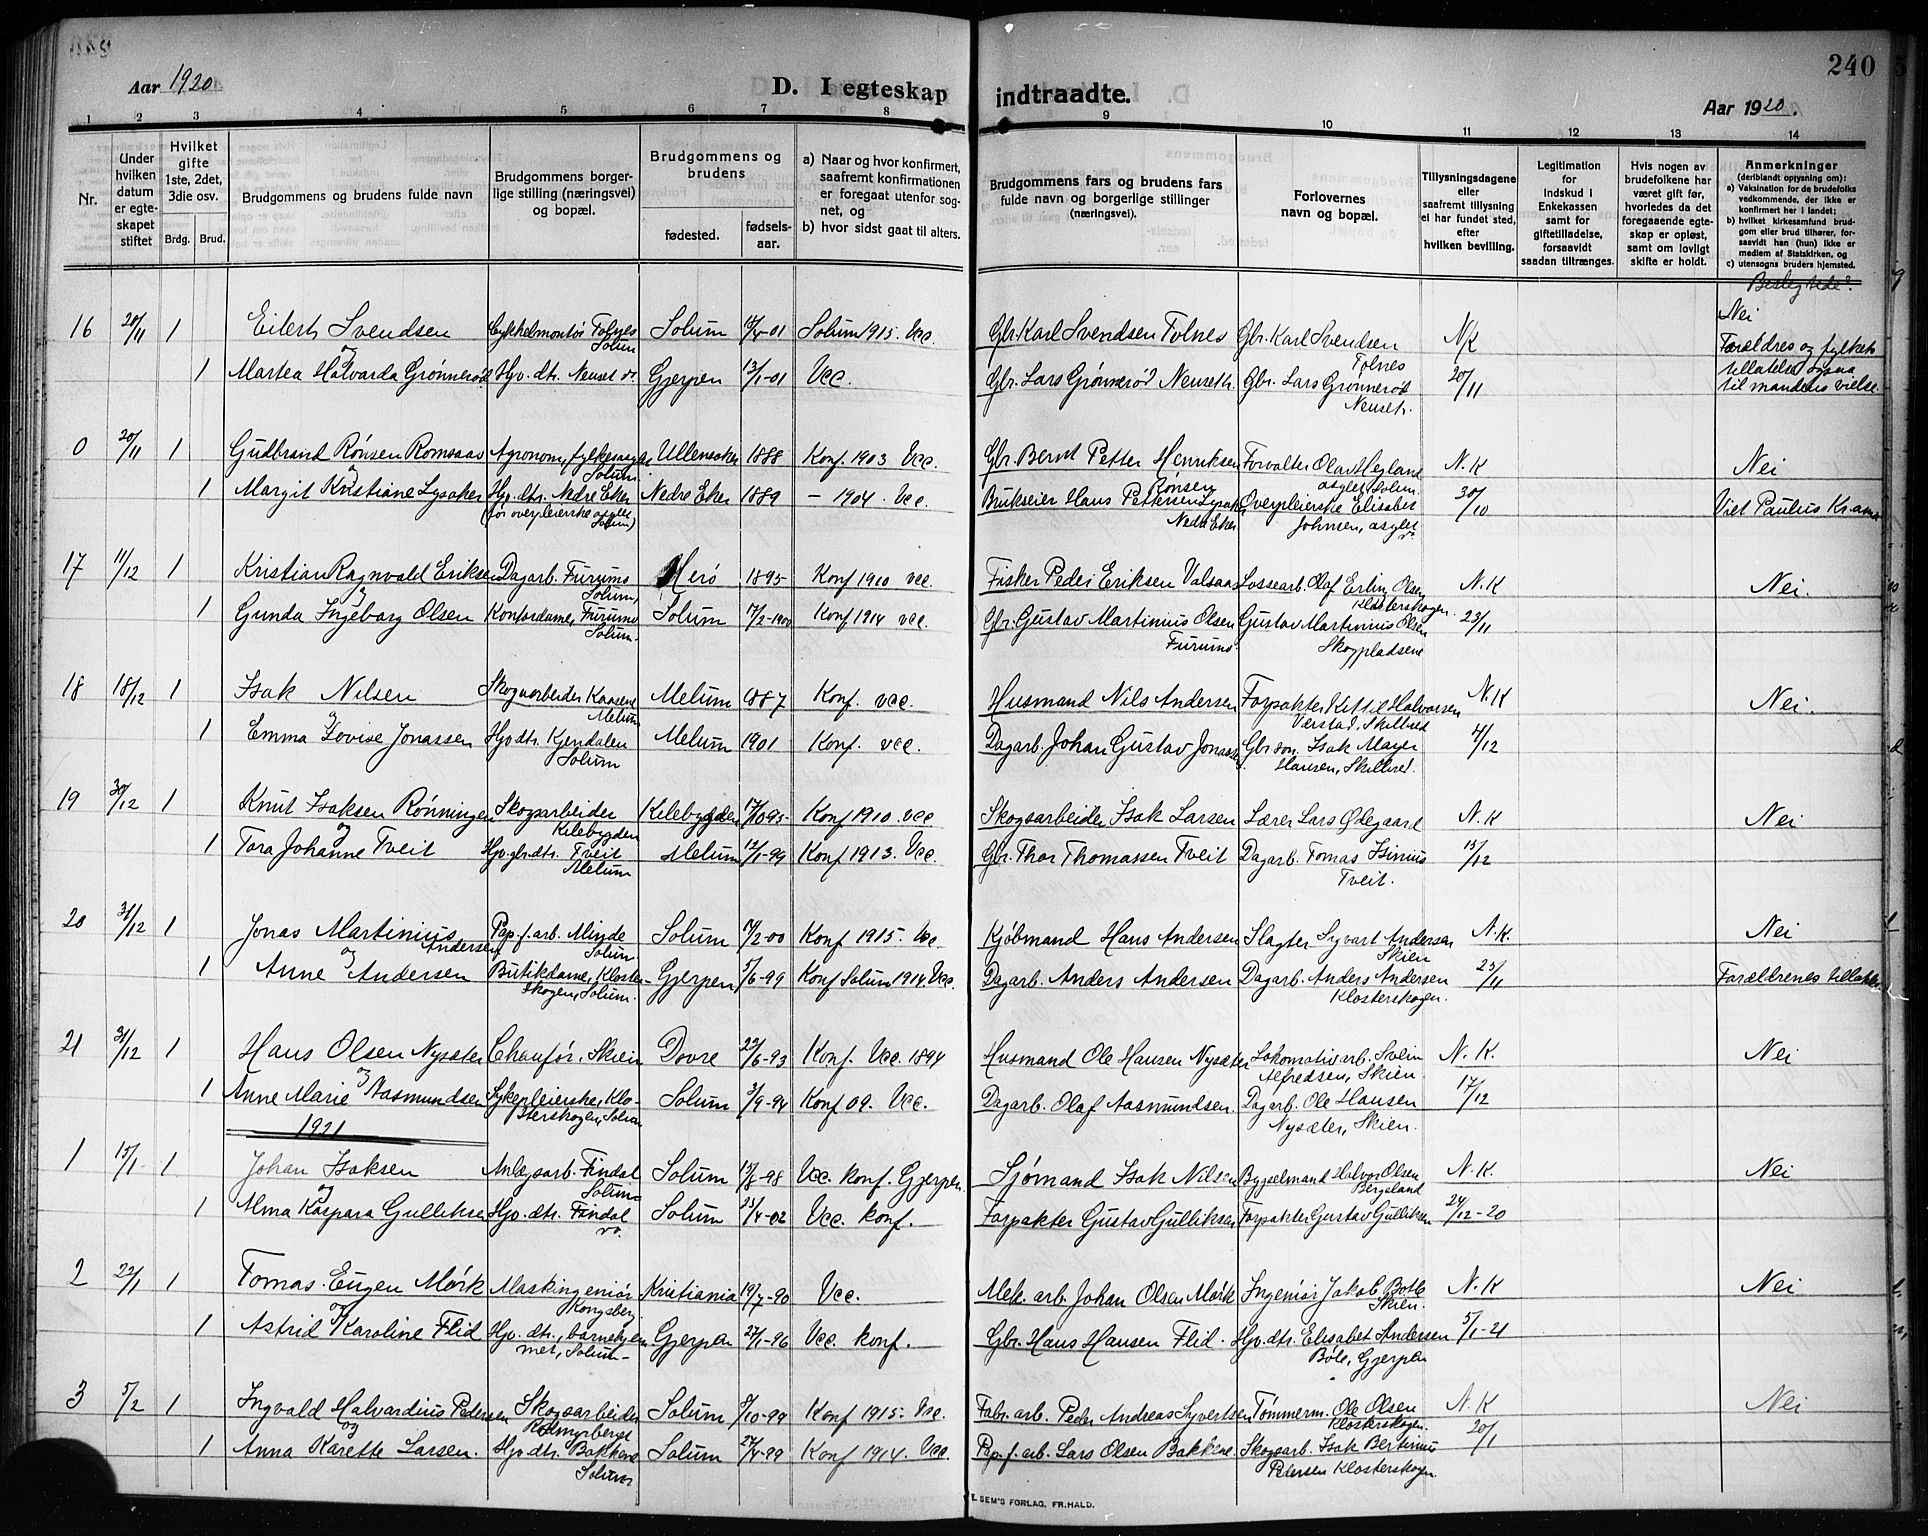 240
Aar 1920
D. I egteskap indtraadte.
Aar 1920.
1 2 3 4 5 6 7 8 9 10 11 12 13 14
Nr.
Under hvilken datum er egteskapet stiftet
Hvilket gifte 1ste, 2det, 3die osv.
Brdg. Brud.
Brudgommens og brudens fulde navn
Brudgommens borgerlige stilling (næringsvei) og bopæl.
Brudgommens og brudens
fødested. fødselsaar.
a) Naar og hvor konfirmert, saafremt konfirmationen er foregaat utenfor sognet, og
b) hvor sidst gaat til alters.
Brudgommens fars og brudens fars fulde navn og borgerlige stillinger (næringsvei).
Forlovernes navn og bopæl.
Tillysningsdagene eller saafremt tillysning ei har fundet sted, efter hvilken bevilling.
Legitimation for indskud i Enkekassen samt for giftetilladelse, forsaavidt saadan tiltrænges.
Hvis nogen av brudefolkene har været gift før, hvorledes da det foregaaende egteskap er opløst, samt om lovligt skifte er holdt.
Anmerkninger (deriblandt opjysning om):
a) Vaksination for de brudefolks vedkommende, der ikke er konfirmert her i landet;
b) hvilket kirkesamfund brudgom eller brud tilhører, forsaavidt han (hun) ikke er medlem af Statskirken, og
c) utensogns bruders hjemsted.
Beslegtede?
16 20/11 1 Eilert Svendsen Cykkelmontør Tolnes Solum Solum 01 Solum 1915. Vcc. Gbr. Karl Svendsen Tolnes Gbr. Karl Svendsen Tolnes N.K Nei
og
1 Martea Halvarda Grønnerød Hjv. dtr. Neuset Gjerpen 13/1-01 Vcc. Gbr. Lars Grønnerød Neuseth. Gbr. Lars Grønnerød Neuset. 20/11 Forældres og fylkets tillatelse til mandens vielse
0 20/11 1 Gudbrand Rønsen Romsaas Agronom, Solum Ullensaker 1888 Konf. 1903 Vcc. Gbr. Bernt Petter Henriksen Rønsen Forvalter Olav Hegland asylet, Solum. N.K Nei
og
1 Margit Kristiane Lysaker Hjv. dtr. Nedre Eker (før overpleierske asylet Solum) Nedre Eker 1889 – 1904. Vcc. Brukseier Hans Pettersen Lysaker Nedre Eker Overpleierske Elisabet Johnsen, asylet 30/10 Viet Paulus Kr.
17 11/12 1 Kristian Ragnvald Eriksen Dagarb. Furumo Solum, Herø 1895 Konf 1910 vcc. Fisker Peder Eriksen Valsaas Lossearb. Olaf Erling Olsen Klosterskogen. N.K Nei.
og
1 Gunda Ingeborg Olsen Kontordame, Furumo Solum. Solum 17/2-1900 Konf 1914 vcc. Gbr. Gustav Martinius Olsen Furumo. Gustav Martinius Olsen Skogpladsene 23/11
18 18/12 1 Isak Nilsen Skogsarbeider Kaasene Melum Melum 1887 Konf. vcc. Husmand Nils Andersen Forpakter Kittil Halvorsen Værstad, Skilbred N.K Nei.
og
1 Emma Lovise Jonassen Hjv dtr. Kjendalen Solum Melum 1901 Konf. vcc. Dagarb. Johan Gustav Jonassen Gbr søn. Isak Mayer Hansen, Skilbred. 4/12
19 30/12 1 Knut Isaksen Rønningen Skogsarbeider Kilebygden Kilebygden 17/10 95 Konf 1910. vcc. Skogsarbeider Isak Larsen Lærer Lars Ødegaard N.K Nei
og
1 Tora Johanne Tveit Hjv. gbrdtr. Tveit Melum Melum 12/1-94 Konf 1913. Vcc. Gbr. Thor Thomassen Tveit Dagarb. Tomas Isinius Tveit. 13/12
20 31/12 1 Jonas Martinius Andersen Pap. f. arb. Minde Solum Solum 14/2-00 Konf 1915. Vcc Kjøbmand Hans Andersen Slagter Syvart Andersen Skien N.K. Nei
og
1 Anne Andersen Butikdame, Klosterskogen, Solum. Gjerpen 5/6-99 Konf Solum 1914. Vcc. Dagarb. Anders Andersen Dagarb. Anders Andersen Klosterskogen. 23/11 Forældrenes tillatelse
21 31/12 1 Hans Olsen Nysæter Chaufør. Skien Dovre 22/6-93 Konf. Vcc. 1894 Husmand Ole Hansen Nysæter Lokomotivarb. Svein Alfredsen, Skien. N.K. Nei
og
1 Anne Marie Aasmundsen Sykepleierske, Klosterskogen, Solum Solum 3/9-94 Konf 09. Vcc. Dagarb. Olaf Aasmundsen. Dagarb. Ole Hansen Nysæter, Skien. 17/12
1921
1 15/1 1 Johan Isaksen Anlægsarb. Findal Solum Solum 15/8-98 Vcc. konf. Gjerpen. Sjømand Isak Nilsen Bygselmand Halvor Olsen Bergeland N.K. Nei
og
1 Alma Kaspara Gulliksen Hjv. dtr. Findal Solum 23/4-02 Vcc. konf. Forpakter Gustav Gulliksen Forpakter Gustav Gulliksen 24/12-20
2 22/1 1 Tomas Eugen Mørk Maskingeniør Kongsberg Kristiania 19/7-90 Vcc. Mek. arb. Johan Olsen Mørk Ingeniør Jakob Skien. N.K Nei
og
1 Astrid Karoline Flid Hjv. dtr., barnehjemmet, Solum Gjerpen 27/1-96 Vcc. konf. Gbr. Hans Hansen Flid. Hjv. dtr. Elisabet Andersen Bøle, Gjerpen 5/1-21
3 5/2 1 Ingvald Halvardius Pedersen Skogsarbeider Solum 8/10-99 Konf 1915. Vcc. Fabr. arb. Peder Andreas Syvertsen Tømmerm. Ole Olsen Klosterskogen. N.K Nei
og
1 Anna Karette Larsen. Hjv. dtr. Bakkene Solum Solum 27/4-99 Konf 1914. Vcc. Pap. f. arb. Lars Olsen Bakkene. Skogsarb. Isak Bertinius Pedersen Klosterskogen. 20/1
E. SEM'S FORLAG, FR.HALD.